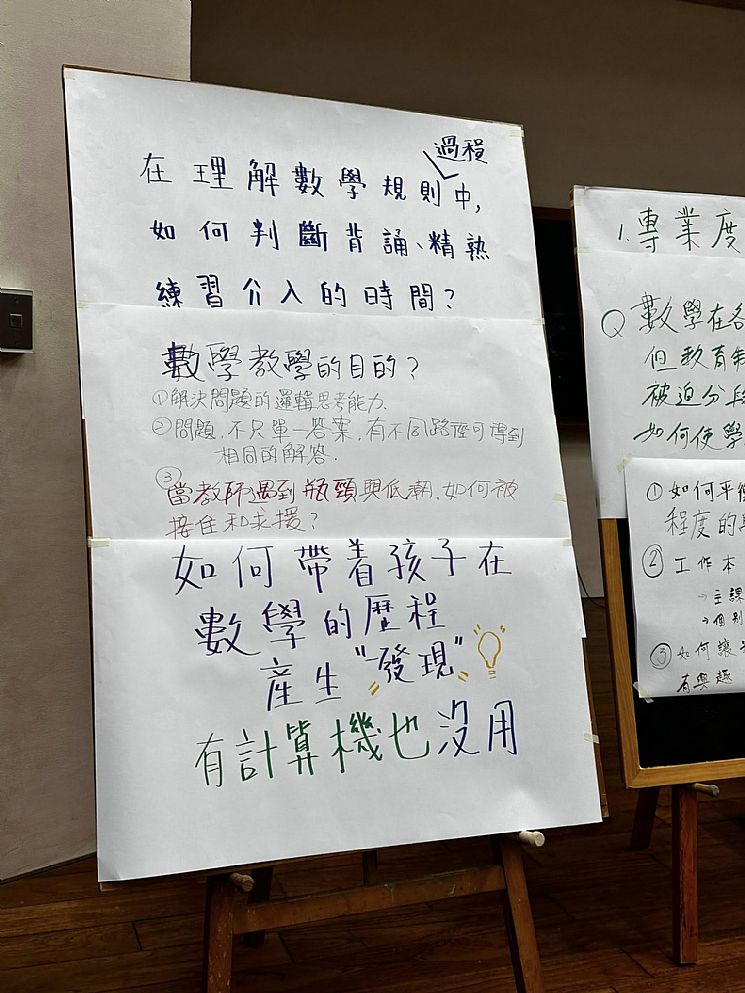 在理解數學規則過程中,
如何判斷背誦、精熟
練習介入的時間?
數學教學的目的?
①解決問題的邏輯思考能力.
②問題,不只單一答案,有不同路徑可得到
相同的解答.
③
當教師遇到瓶頸與低潮,如何被
接住和求援?
如何帶着孩子在
數學的歷程
產生"發現"
有計算機也沒用
1.專業度
Q 數學在各
但教育
被迫分段
如何使學
①如何平衡
程度的
②工作本
→主課
→個別
③如何讓
有興趣